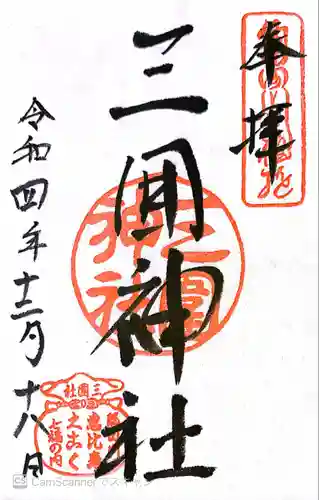 奉拝
三囲神社
令和四年十二月十八日
三囲社
恵比寿
大こく
七福の内
CS CamScanner でスキャン